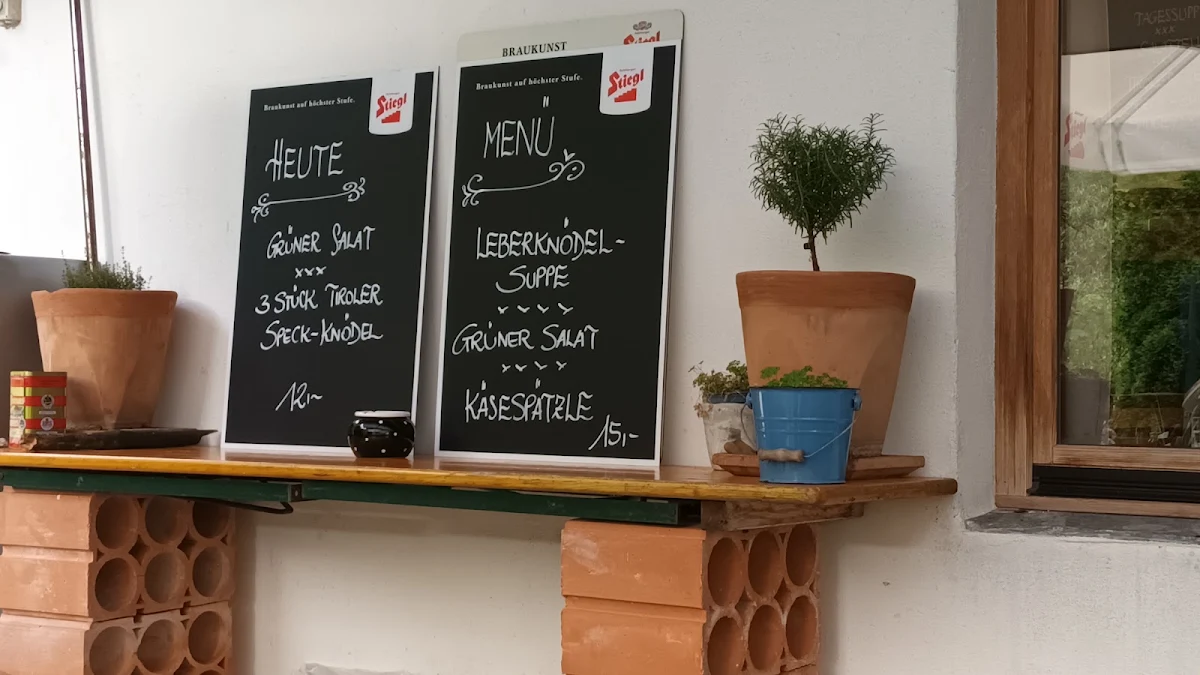 Braukunst auf höchster Stufe.
Stiegl
HEUTE
GRÜNER SALAT
xxx
3 STÜCK TIROLER
SPECK-KNÖDEL
12,-
BRAUKUNST
Stiegl
Braukunst auf höchster Stufe.
Stiegl
MENÜ
LEBERKNÖDEL-
SUPPE
GRÜNER SALAT
KÄSESPÄTZLE
15,-
TAGESSUPP
xxx